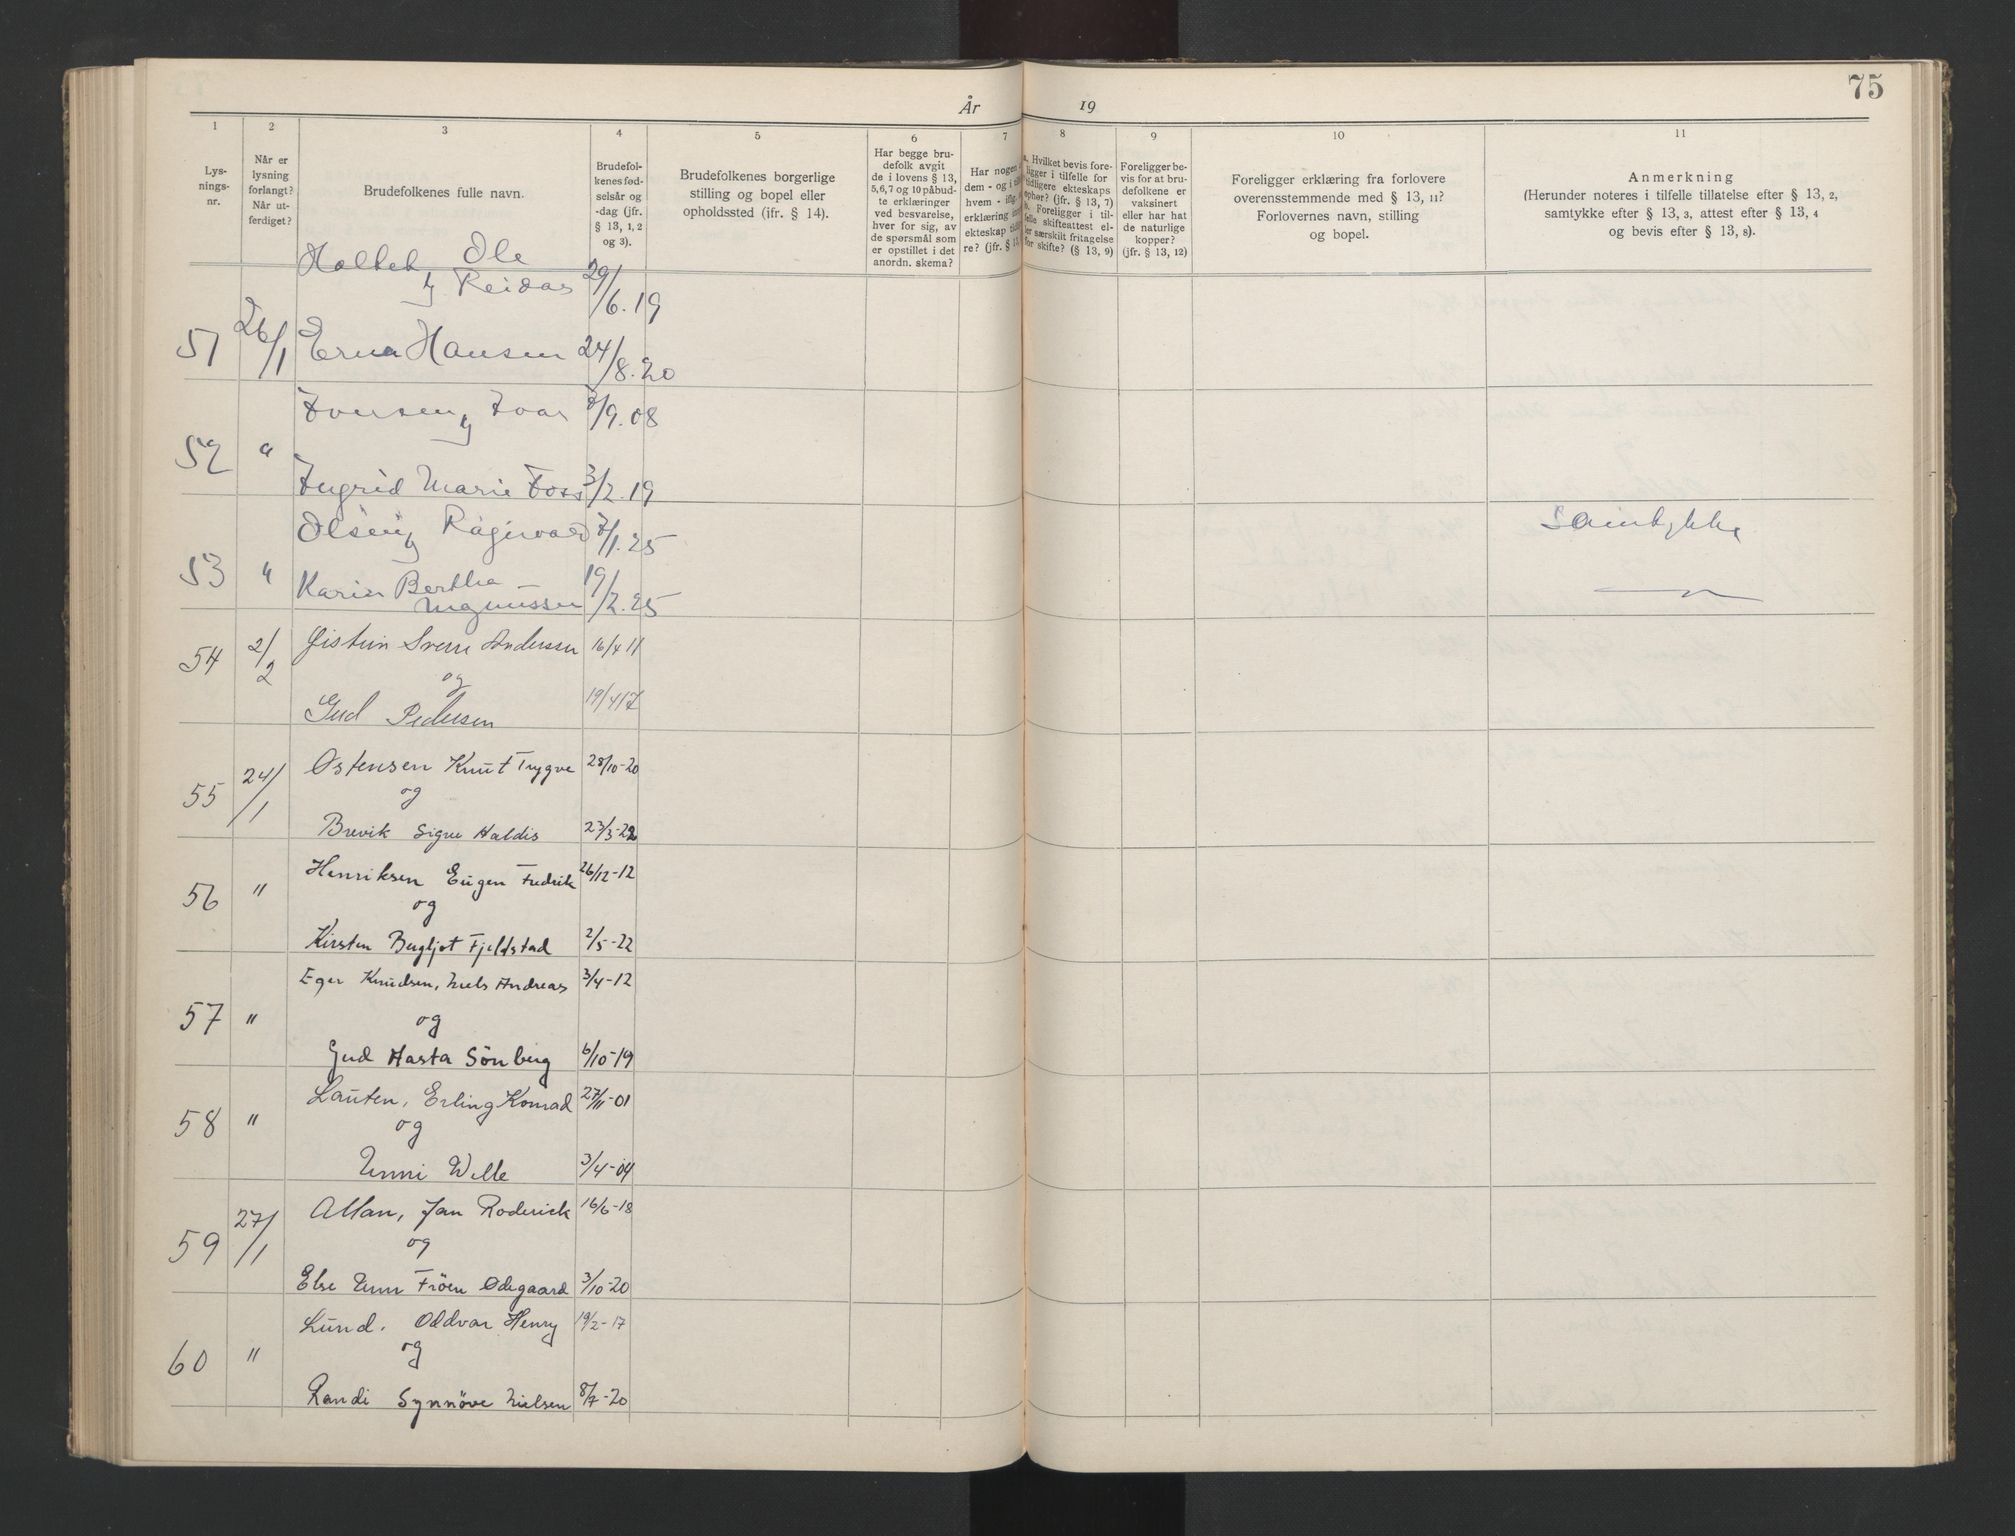 75
År 19
1 2 3 4 5 6 7 8 9 10 11
Lys-
nings-
nr.
Når er
lysning
forlangt?
Når ut-
ferdiget?
Brudefolkenes fulle navn.
Brudefol-
kenes fød-
selsår og
-dag (jfr.
§ 13, 1, 2
og 3).
Brudefolkenes borgerlige
stilling og bopel eller
opholdssted (ifr. § 14).
Har begge bru-
defolk avgit
de i lovens § 13,
5, 6, 7 og 10 påbud-
te erklæringer
ved besvarelse,
hver for sig, av
de spørsmål som
er opstillet i det
anordn. skema?
Har nogen
dem - og i
hvem - iflg.
erklæring
ekteskap
re? (jfr. § 13,
a. Hvilket bevis fore-
ligger i tilfelle for
tidligere ekteskaps
ophør? (jfr. § 13, 7)
b. Foreligger i til-
felle skifteattest el-
ler særskilt fritagelse
for skifte? (§ 13, 9)
Foreligger be-
vis for at bru-
defolkene er
vaksinert
eller har hat
de naturlige
kopper?
(jfr. § 13, 12)
Foreligger erklæring fra forlovere
overensstemmende med § 13, 11?
Forlovernes navn, stilling
og bopel.
Anmerkning
(Herunder noteres i tilfelle tillatelse efter § 13, 2,
samtykke efter § 13, 3, attest efter § 13, 4
og bevis efter § 13, 8).
Ole
Reidar 29/6.19
51 26/1 Erna Hansen 24/8.20
Iversen, Ivar /9.08
52 "
Ingrid Marie Foss 3/2.19
Olsen, Ragnvald 7/1.25 Samtykke
53 " Karin Bertha 19/2.25
Magnussen
54 2/2 Øistein Sverre Anderssen 16/4 11
og
Gud Pedersen 19/4 17
55 24/1 Østensen Knut Trygve 28/10-20
og
Brevik Signe Haldis 23/3-22
56 " Henriksen Eugen Fredrik 26/12-12
og
Kirsten Bergljot Fjeldstad 2/5-22
Eger Knudsen, Niels Andreas 3/4-12
57 " og
Gud Hasta Sönberg 6/10-19
58 " Lauten, Erling Konrad 27/11-01
og
Unni Wille 3/4-04
59 27/1 Allan, Jan Roderick 16/6-18
og
Else Unn Fröen Ødegaard 3/10-20
Lund. Oddvar Henry 19/2-17
60 " og
Randi Synnöve Nielsen 8/7-20